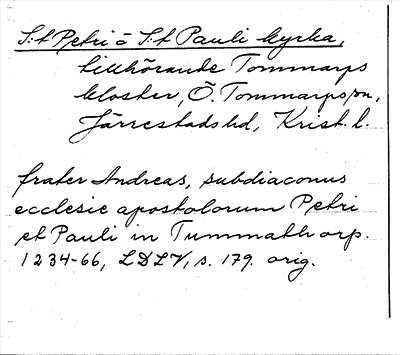 S:t Petri o S:t Pauli kyrka,
tillhörande Tommarps
kloster, Ö. Tommarps sn,
Järrestads hd, Krist. l.
frater Andreas, subdiaconus
ecclesie apostolorum Petri
et Pauli in Tummathorp.
1234-66, LDLV, s. 179. orig.